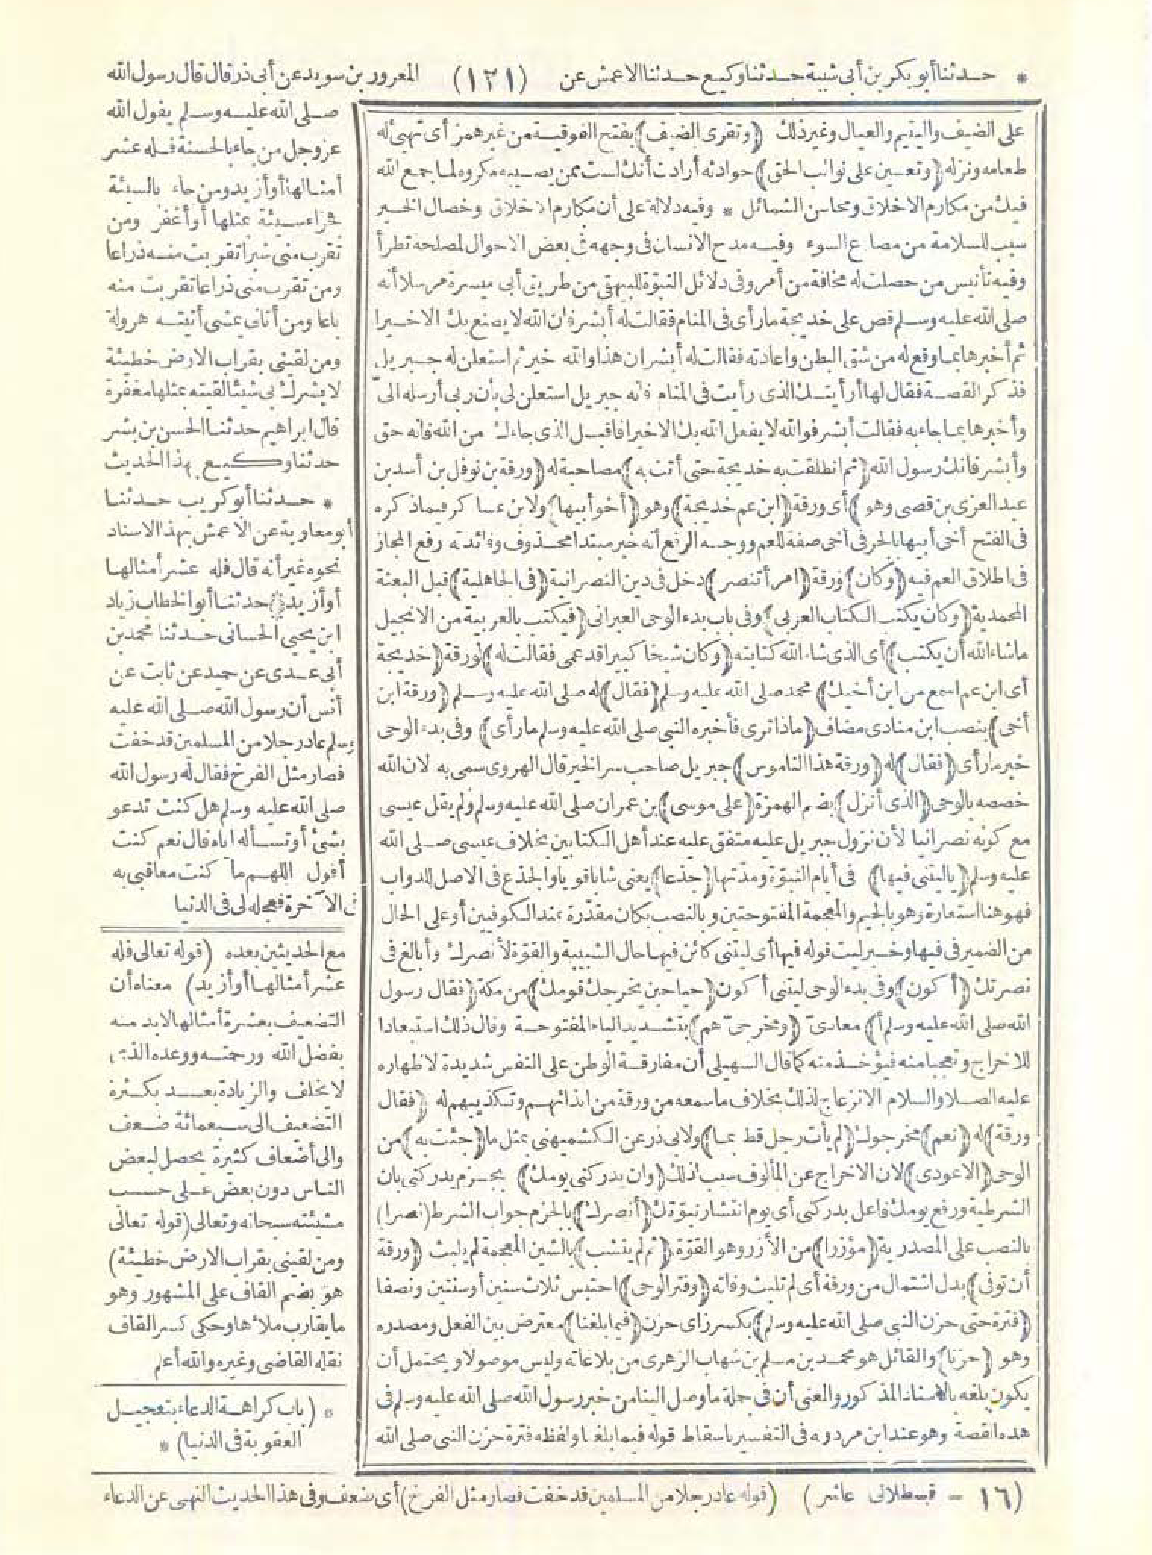 * حدثنا أبو بكر بن أبي شيبة حدثنا وكيع حدثنا الاعمش عن (١٢١) المعرور بن سويد عن أبي ذر قال قال رسول الله
على الضيف واليتيم والعيال وغير ذلك (وتقرى الضيف) بفتح الفوقية من غير همز أى تهيئ له
طعامه ونزله (وتعين على نوائب الحق) حوادثه أرادت أنك لست ممن يصيبه مكروه لما جمع الله
فيك من مكارم الاخلاق ومحاسن الشمائل * وفيه دلالة على أن مكارم الاخلاق وخصال الخير
سبب للسلامة من مصارع السوء وفيه مدح الانسان فى وجهه فى بعض الاحوال لمصلحة تطرأ
وفيه تأنيس من حصلت له مخافة من أمر وفى دلائل النبوة للبيهقى من طريق أبى ميسرة مرسلا أنه
صلى الله عليه وسلم قص على خديجة ما رأى فى المنام فقالت له أبشر فان الله لا يصنع بك الا خيرا
ثم أخبرها بما وقع له من شق البطن واعادته فقالت له أبشر ان هذا والله خير ثم استعلن له جبريل
فذكر القصة فقال لها أرأيتك الذى رأيت فى المنام فانه جبريل استعلن لى بأن ربى أرسله الىّ
وأخبرها بما جاء به فقالت أبشر فوالله لا يفعل الله بك الا خيرا فاقبل الذى جاءك من الله فانه حق
وأبشر فانك رسول الله (ثم انطلقت به خديجة حتى أتت به) مصاحبة له (ورقة بن نوفل بن أسد بن
عبد العزى بن قصى وهو) أى ورقة (ابن عم خديجة) وهو (أخو أبيها) ولابن عساكر فيما ذكره
فى الفتح أخى أبيها بالجر فى أخى صفة للعم ووجه الرفع أنه خبر مبتدا محذوف وفائدته رفع المجاز
فى اطلاق العم فيه (وكان) ورقة (امرأ تنصر) دخل فى دين النصرانية (فى الجاهلية) قبل البعثة
المحمدية (وكان يكتب الكتاب العربى) وفى باب بدء الوحى العبرانى (فيكتب بالعربية من الانجيل
ما شاء الله أن يكتب) أى الذى شاء الله كتابته (وكان شيخا كبيرا قد عمى فقالت له) لورقة (خديجة
أى ابن عم اسمع من ابن أخيك) محمد صلى الله عليه وسلم (فقال) له صلى الله عليه وسلم (ورقة ابن
أخى) بنصب ابن منادى مضاف (ماذا ترى فأخبره النبى صلى الله عليه وسلم ما رأى) وفى بدء الوحى
خبر ما رأى (فقال) له (ورقة هذا الناموس) جبريل صاحب سر الخير قال الهروى سمى به لان الله
خصصه بالوحى (الذى أنزل) بضم الهمزة (على موسى) بن عمران صلى الله عليه وسلم ولم يقل عيسى
مع كونه نصرانيا لأن نزول جبريل عليه متفق عليه عند أهل الكتابين بخلاف عيسى صلى الله
عليه وسلم (يا ليتنى فيها) فى أيام النبوة ومدتها (جذعا) يعنى شابا قويا والجذع فى الاصل للدواب
فهو هنا استعارة وهو بالجيم والمعجمة المفتوحتين وبالنصب بكان مقدرة عند الكوفيين أو على الحال
من الضمير فى فيها وخبر ليت قوله فيها أى ليتنى كائن فيها حال الشبيبة والقوة لأنصرك وأبالغ فى
نصرتك (أكون) وفى بدء الوحى ليتنى أكون (حيا حين يخرجك قومك) من مكة (فقال رسول
الله صلى الله عليه وسلم أ) معادىّ (ومخرجىّ هم) بتشديد الياء المفتوحة وقال ذلك استبعادا
للاخراج وتعجبا منه فيؤخذ منه كما قال السهيلى أن مفارقة الوطن على النفس شديدة لاظهاره
عليه الصلاة والسلام الانزعاج لذلك بخلاف ما سمعه من ورقة من ايذائهم وتكذيبهم له (فقال
ورقة) له (نعم) مخرجوك (لم يأت رجل قط بما) ولابى ذر عن الكشميهنى بمثل ما (جئت به) من
الوحى (الا عودى) لان الاخراج عن المألوف سبب لذلك (وان يدركنى يومك) بجزم يدركنى بان
الشرطية ورفع يومك فاعل يدركنى أى يوم انتشار نبوتك (أنصرك) بالجزم جواب الشرط (نصرا)
بالنصب على المصدرية (مؤزرا) من الأزر وهو القوة (ثم لم ينشب) بالشين المعجمة لم يلبث (ورقة
أن توفى) بدل اشتمال من ورقة أى لم تلبث وفاته (وفتر الوحى) احتبس ثلاث سنين أو سنتين ونصفا
(فترة حتى حزن النبى صلى الله عليه وسلم) بكسر زاى حزن (فيما بلغنا) معترض بين الفعل ومصدره
وهو (حزنا) والقائل هو محمد بن مسلم بن شهاب الزهرى من بلاغاته وليس موصولا ويحتمل أن
يكون بلغه بالاسناد المذكور والمعنى أن فى جملة ما وصل الينا من خبر رسول الله صلى الله عليه وسلم فى
هذه القصة وهو عند ابن مردويه فى التفسير باسقاط قوله فيما بلغنا ولفظه فترة حزن النبى صلى الله
صلى الله عليه وسلم يقول الله
عز وجل من جاء بالحسنة فله عشر
أمثالها أو أزيد ومن جاء بالسيئة
فجزاء سيئة مثلها أو أغفر ومن
تقرب منى شبرا تقربت منه ذراعا
ومن تقرب منى ذراعا تقربت منه
باعا ومن أتانى يمشى أتيته هرولة
ومن لقينى بقراب الارض خطيئة
لا يشرك بى شيئا لقيته بمثلها مغفرة
قال ابراهيم حدثنا الحسن بن بشر
حدثنا وكيع بهذا الحديث
* حدثنا أبو كريب حدثنا
أبو معاوية عن الاعمش بهذا الاسناد
نحوه غير أنه قال فله عشر أمثالها
أو أزيد حدثنا أبو الخطاب زياد
ابن يحيى الحسانى حدثنا محمد بن
أبى عدى عن حميد عن ثابت عن
أنس أن رسول الله صلى الله عليه
وسلم عاد رجلا من المسلمين قد خفت
فصار مثل الفرخ فقال له رسول الله
صلى الله عليه وسلم هل كنت تدعو
بشئ أو تسأله اياه قال نعم كنت
أقول اللهم ما كنت معاقبى به
فى الآخرة فعجله لى فى الدنيا
مع الحديثين بعده (قوله تعالى فله
عشر أمثالها أو أزيد) معناه أن
التضعيف بعشرة أمثالها لا بد منه
بفضل الله ورحمته ووعده الذى
لا يخلف والزيادة بعد بكثرة
التضعيف الى سبعمائة ضعف
والى أضعاف كثيرة يحصل لبعض
الناس دون بعض على حسب
مشيئته سبحانه وتعالى (قوله تعالى
ومن لقينى بقراب الارض خطيئة)
هو بضم القاف على المشهور وهو
ما يقارب ملأها وحكى كسر القاف
نقله القاضى وغيره والله أعلم
* (باب كراهة الدعاء بتعجيل
العقوبة فى الدنيا) *
(١٦ - قسطلانى عاشر) (قوله عاد رجلا من المسلمين قد خفت فصار مثل الفرخ) أى ضعف وفى هذا الحديث النهى عن الدعاء